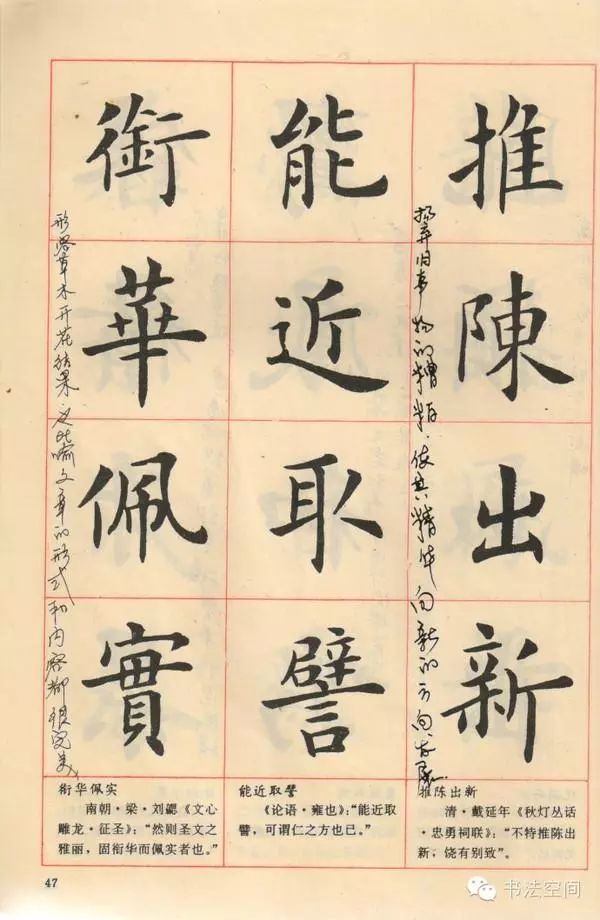 推陳出新
扬弃旧事物的糟粕.使其精华向新的方向发展
能近取譬
銜華佩實
形容草木开花结果 比喻文章的形式和内容都很完美
衔华佩实
南朝·梁·刘勰《文心
雕龙·征圣》：“然则圣文之
雅丽，固衔华而佩实者也。”
能近取譬
《论语·雍也》：“能近取
譬，可谓仁之方也已。”
推陈出新
清·戴延年《秋灯丛话
·忠勇祠联》：“不特推陈出
新，饶有别致”。
47
书法空间